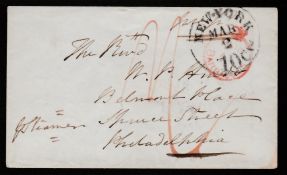 NEW-YORK
MAR
2
10 Cts
The Revd
W. P. 
Belmont Place
Spruce Street
Philadelphia
pr Steamer